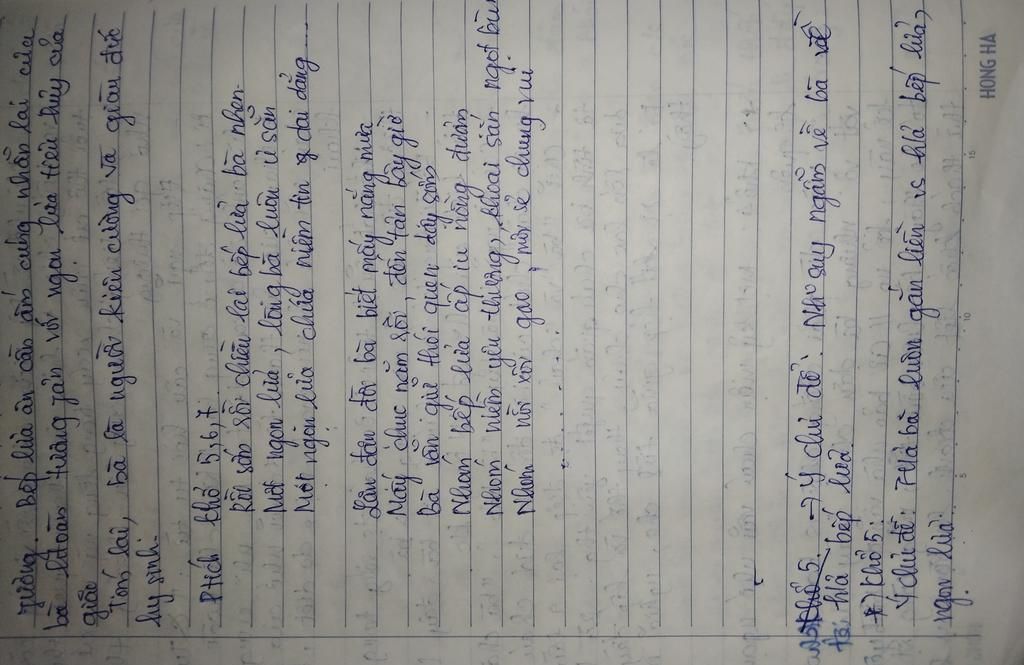 tưởng. Bếp lửa ân cần ấm cúng nhẫn lại của
bà hoàn tương tản với ngọn lửa tiêu hủy của
giặc
Tóm lại, bà là người kiên cường và giàu đức
hy sinh.
Ptích khổ 5,6,7
Rồi sớm rồi chiều lại bếp lửa bà nhen
Một ngọn lửa, lòng bà luôn ủ sẵn
Một ngọn lửa chứa niềm tin dai dẳng...
Lận đận đời bà biết mấy nắng mưa
Mấy chục năm rồi, đến tận bây giờ
Bà vẫn giữ thói quen dậy sớm
Nhóm bếp lửa ấp iu nồng đượm
Nhóm niềm yêu thương, khoai sắn ngọt bùi
Nhóm nồi xôi gạo mới sẻ chung vui
........
Khổ 5. → Ý chủ đề: Nhữ suy ngẫm về bà về
hả bếp lửa.
*) Khổ 5:
Ý chủ đề: Hả bà luôn gắn liền vs hả bếp lửa,
ngọn lửa.
5 10 15
HONG HA